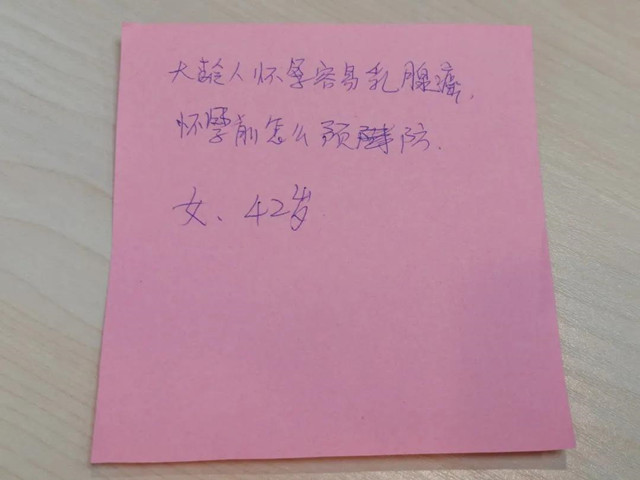 大龄人怀孕容易乳腺癌,
怀孕前怎么预防.
女、42岁